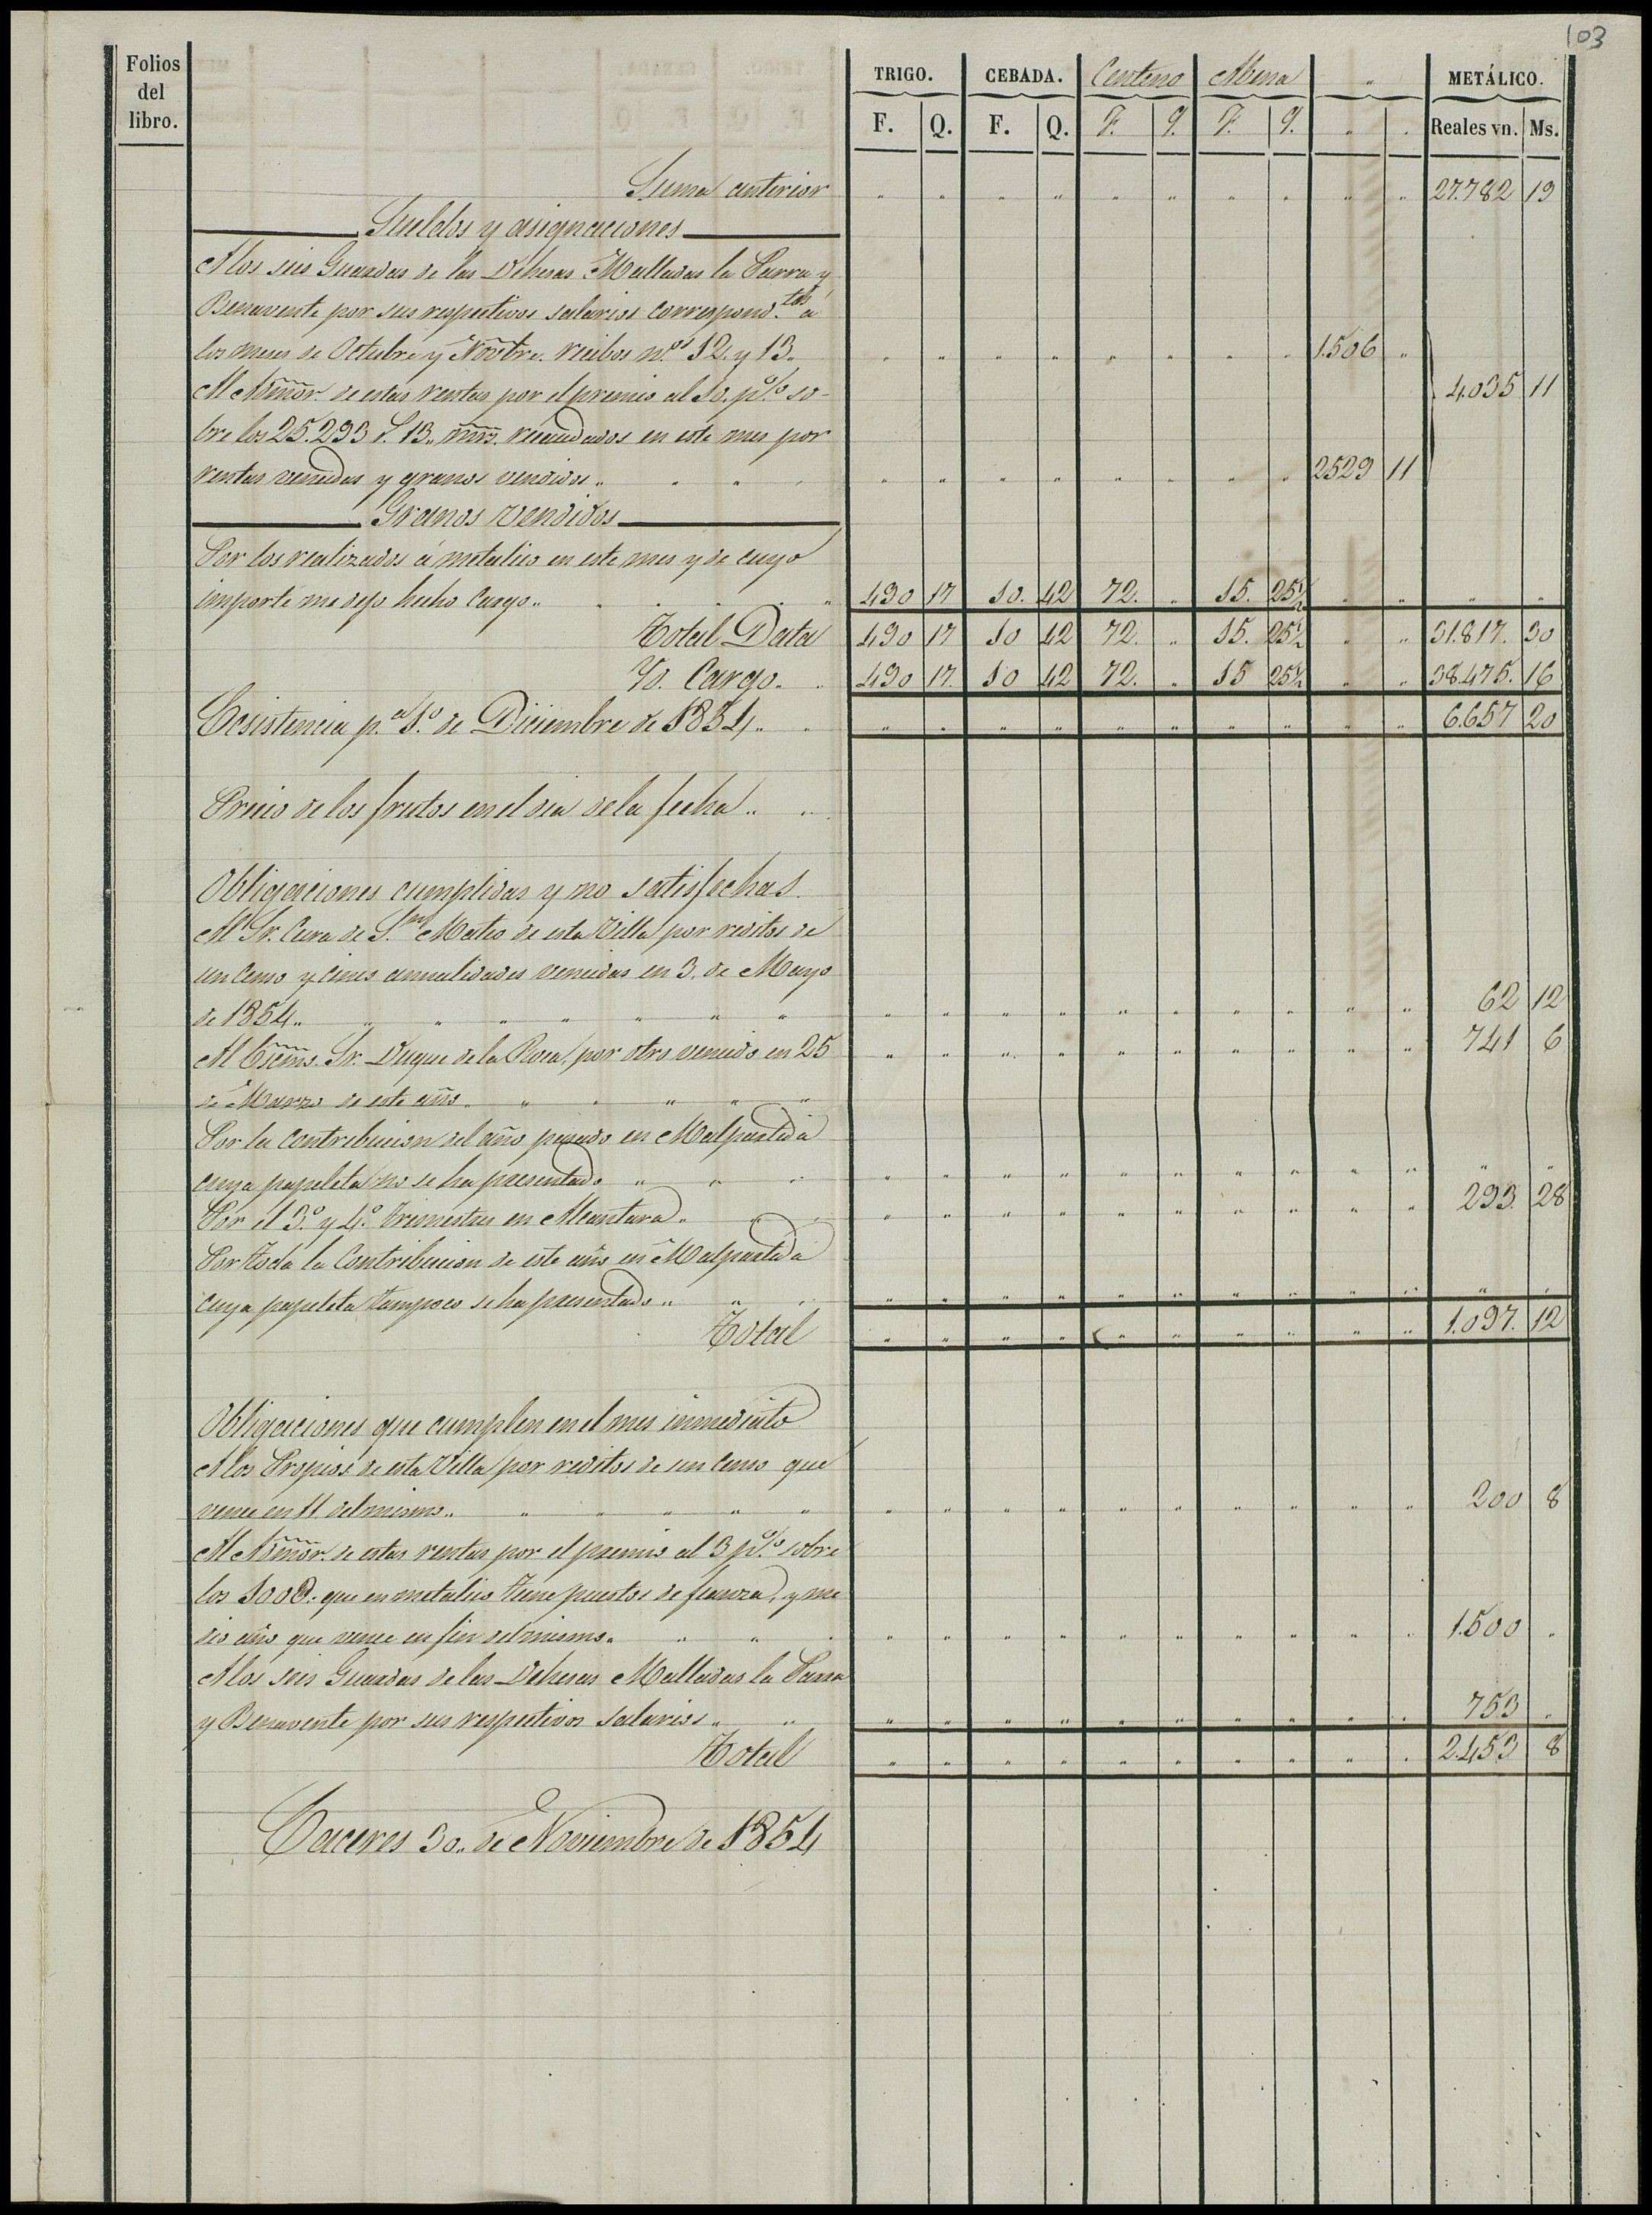 103
Folios del libro. TRIGO. CEBADA. Centeno Abena " METÁLICO.
F. Q. F. Q. F. q. F. q. " " Reales vn. Ms.
Suma anterior " " " " " " " " " " 27.782 19
Sueldos y asignaciones
A los seis Guardas de las Dehesas Malladas la Parra y
Benavente por sus respectivos salarios correspond.tes á
los meses de Octubre y Novbre. recibos n.os 12. y 13. " " " " " " " " 1.506 "
Al Admor. de estas rentas por el premio al 10. p.% so- 4.035 11
bre los 25.293 r. 13,, mrs. recaudados en este mes por
rentas vencidas y granos vendidos " " " " " " " " " 2529 11
Granos vendidos
Por los realizados á metalico en este mes y de cuyo
importe me dejo hecho Cargo " 490 17 10. 42 72. " 15. 25½ " " " "
Total Data 490 17 10 42 72. " 15. 25½ " " 31.817. 30
Yd. Cargo. 490 17. 10 42 72. " 15 25½ " " 38.475. 16
Ecsistencia p.a 1.o de Diciembre de 1854 " " " " " " " " " " " 6.657 20
Precio de los frutos en el dia de la fecha " "
Obligaciones cumplidas y no satisfechas.
Al Sr. Cura de S.n Mateo de esta Villa por reditos de
un censo y cinco anualidades vencidas en 3. de Mayo
de 1854 " " " " " " " " " " " 62 12
Al Escmo. Sr. Duque de la Roca, por otro vencido en 25 " " " " " " " " " " 741 6
de Marzo de este año " " " "
Por la contribucion del año pasado en Malpartida
cuya papeleta no se ha presentado " " " " " " " " " " " " "
Por el 3.o y 4.o trimestres en Alcantara " " " " " " " " " " 293. 28
Por toda la Contribucion de este año en Malpartida
cuya papeleta tampoco se ha presentado " " " " " " " " " " " " "
Total " " " " " " " " " " 1.097. 12
Obligaciones que cumplen en el mes inmediato
A los Propios de esta Villa por reditos de un censo que
vence en 11 del mismo " " " " " " " " " " " 200 8
Al Admor. de estas rentas por el premio al 3 p.% sobre
los 100@. que en metalico tiene puestos de fianza, y me
dio año que vence en fin del mismo " " " " " " " " " " " 1.500 "
A los seis Guardas de las Dehesas Malladas la Parra
y Benavente por sus respectivos salarios " " " " " " " " " " " 753 "
Total " " " " " " " " " " 2.453 8
Caceres 30,, de Noviembre de 1854